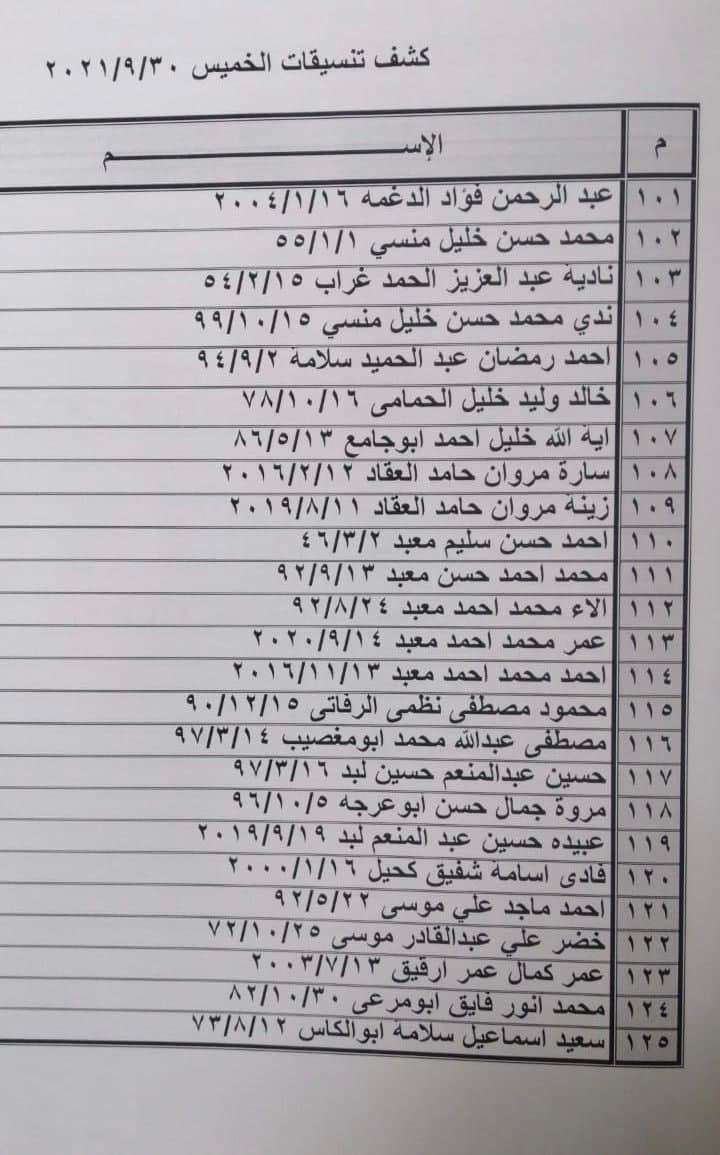 كشف تنسيقات الخميس ٢٠٢١/٩/٣٠
م الإســــــم
١٠١ عبد الرحمن فؤاد الدغمه ٢٠٠٤/١/١٦
١٠٢ محمد حسن خليل منسي ٥٥/١/١
١٠٣ نادية عبد العزيز الحمد غراب ٥٤/٢/١٥
١٠٤ ندي محمد حسن خليل منسي ٩٩/١٠/١٥
١٠٥ احمد رمضان عبد الحميد سلامة ٩٤/٩/٢
١٠٦ خالد وليد خليل الحمامى ٧٨/١٠/١٦
١٠٧ اية الله خليل احمد ابوجامع ٨٦/٥/١٣
١٠٨ سارة مروان حامد العقاد ٢٠١٦/٢/١٢
١٠٩ زينة مروان حامد العقاد ٢٠١٩/٨/١١
١١٠ احمد حسن سليم معبد ٤٦/٣/٢
١١١ محمد احمد حسن معبد ٩٢/٩/١٣
١١٢ الاء محمد احمد معبد ٩٢/٨/٢٤
١١٣ عمر محمد احمد معبد ٢٠٢٠/٩/١٤
١١٤ احمد محمد احمد معبد ٢٠١٦/١١/١٣
١١٥ محمود مصطفى نظمى الرفاتى ٩٠/١٢/١٥
١١٦ مصطفى عبدالله محمد ابومغصيب ٩٧/٣/١٤
١١٧ حسين عبدالمنعم حسين لبد ٩٧/٣/١٦
١١٨ مروة جمال حسن ابوعرجه ٩٦/١٠/٥
١١٩ عبيده حسين عبد المنعم لبد ٢٠١٩/٩/١٩
١٢٠ فادى اسامة شفيق كحيل ٢٠٠٠/١/١٦
١٢١ احمد ماجد علي موسى ٩٢/٥/٢٢
١٢٢ خضر علي عبدالقادر موسى ٧٢/١٠/٢٥
١٢٣ عمر كمال عمر ارقيق ٢٠٠٣/٧/١٣
١٢٤ محمد انور فايق ابومرعى ٨٢/١٠/٣٠
١٢٥ سعيد اسماعيل سلامة ابوالكاس ٧٣/٨/١٢